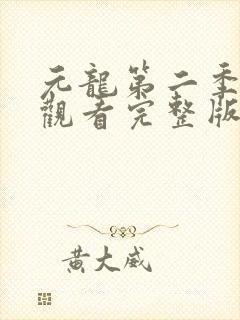 元龍第二季
觀看完整版
黃大威